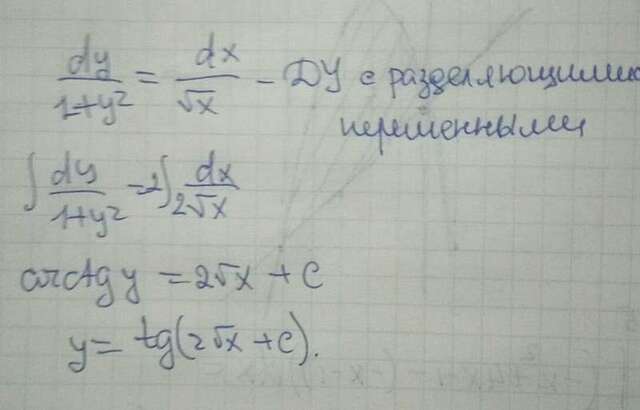 dy/(1+y²) = dx/√x - ДУ с разделяющимися
переменными
∫ dy/(1+y²) = 2∫ dx/(2√x)
arctg y = 2√x + C
y = tg(2√x + C).